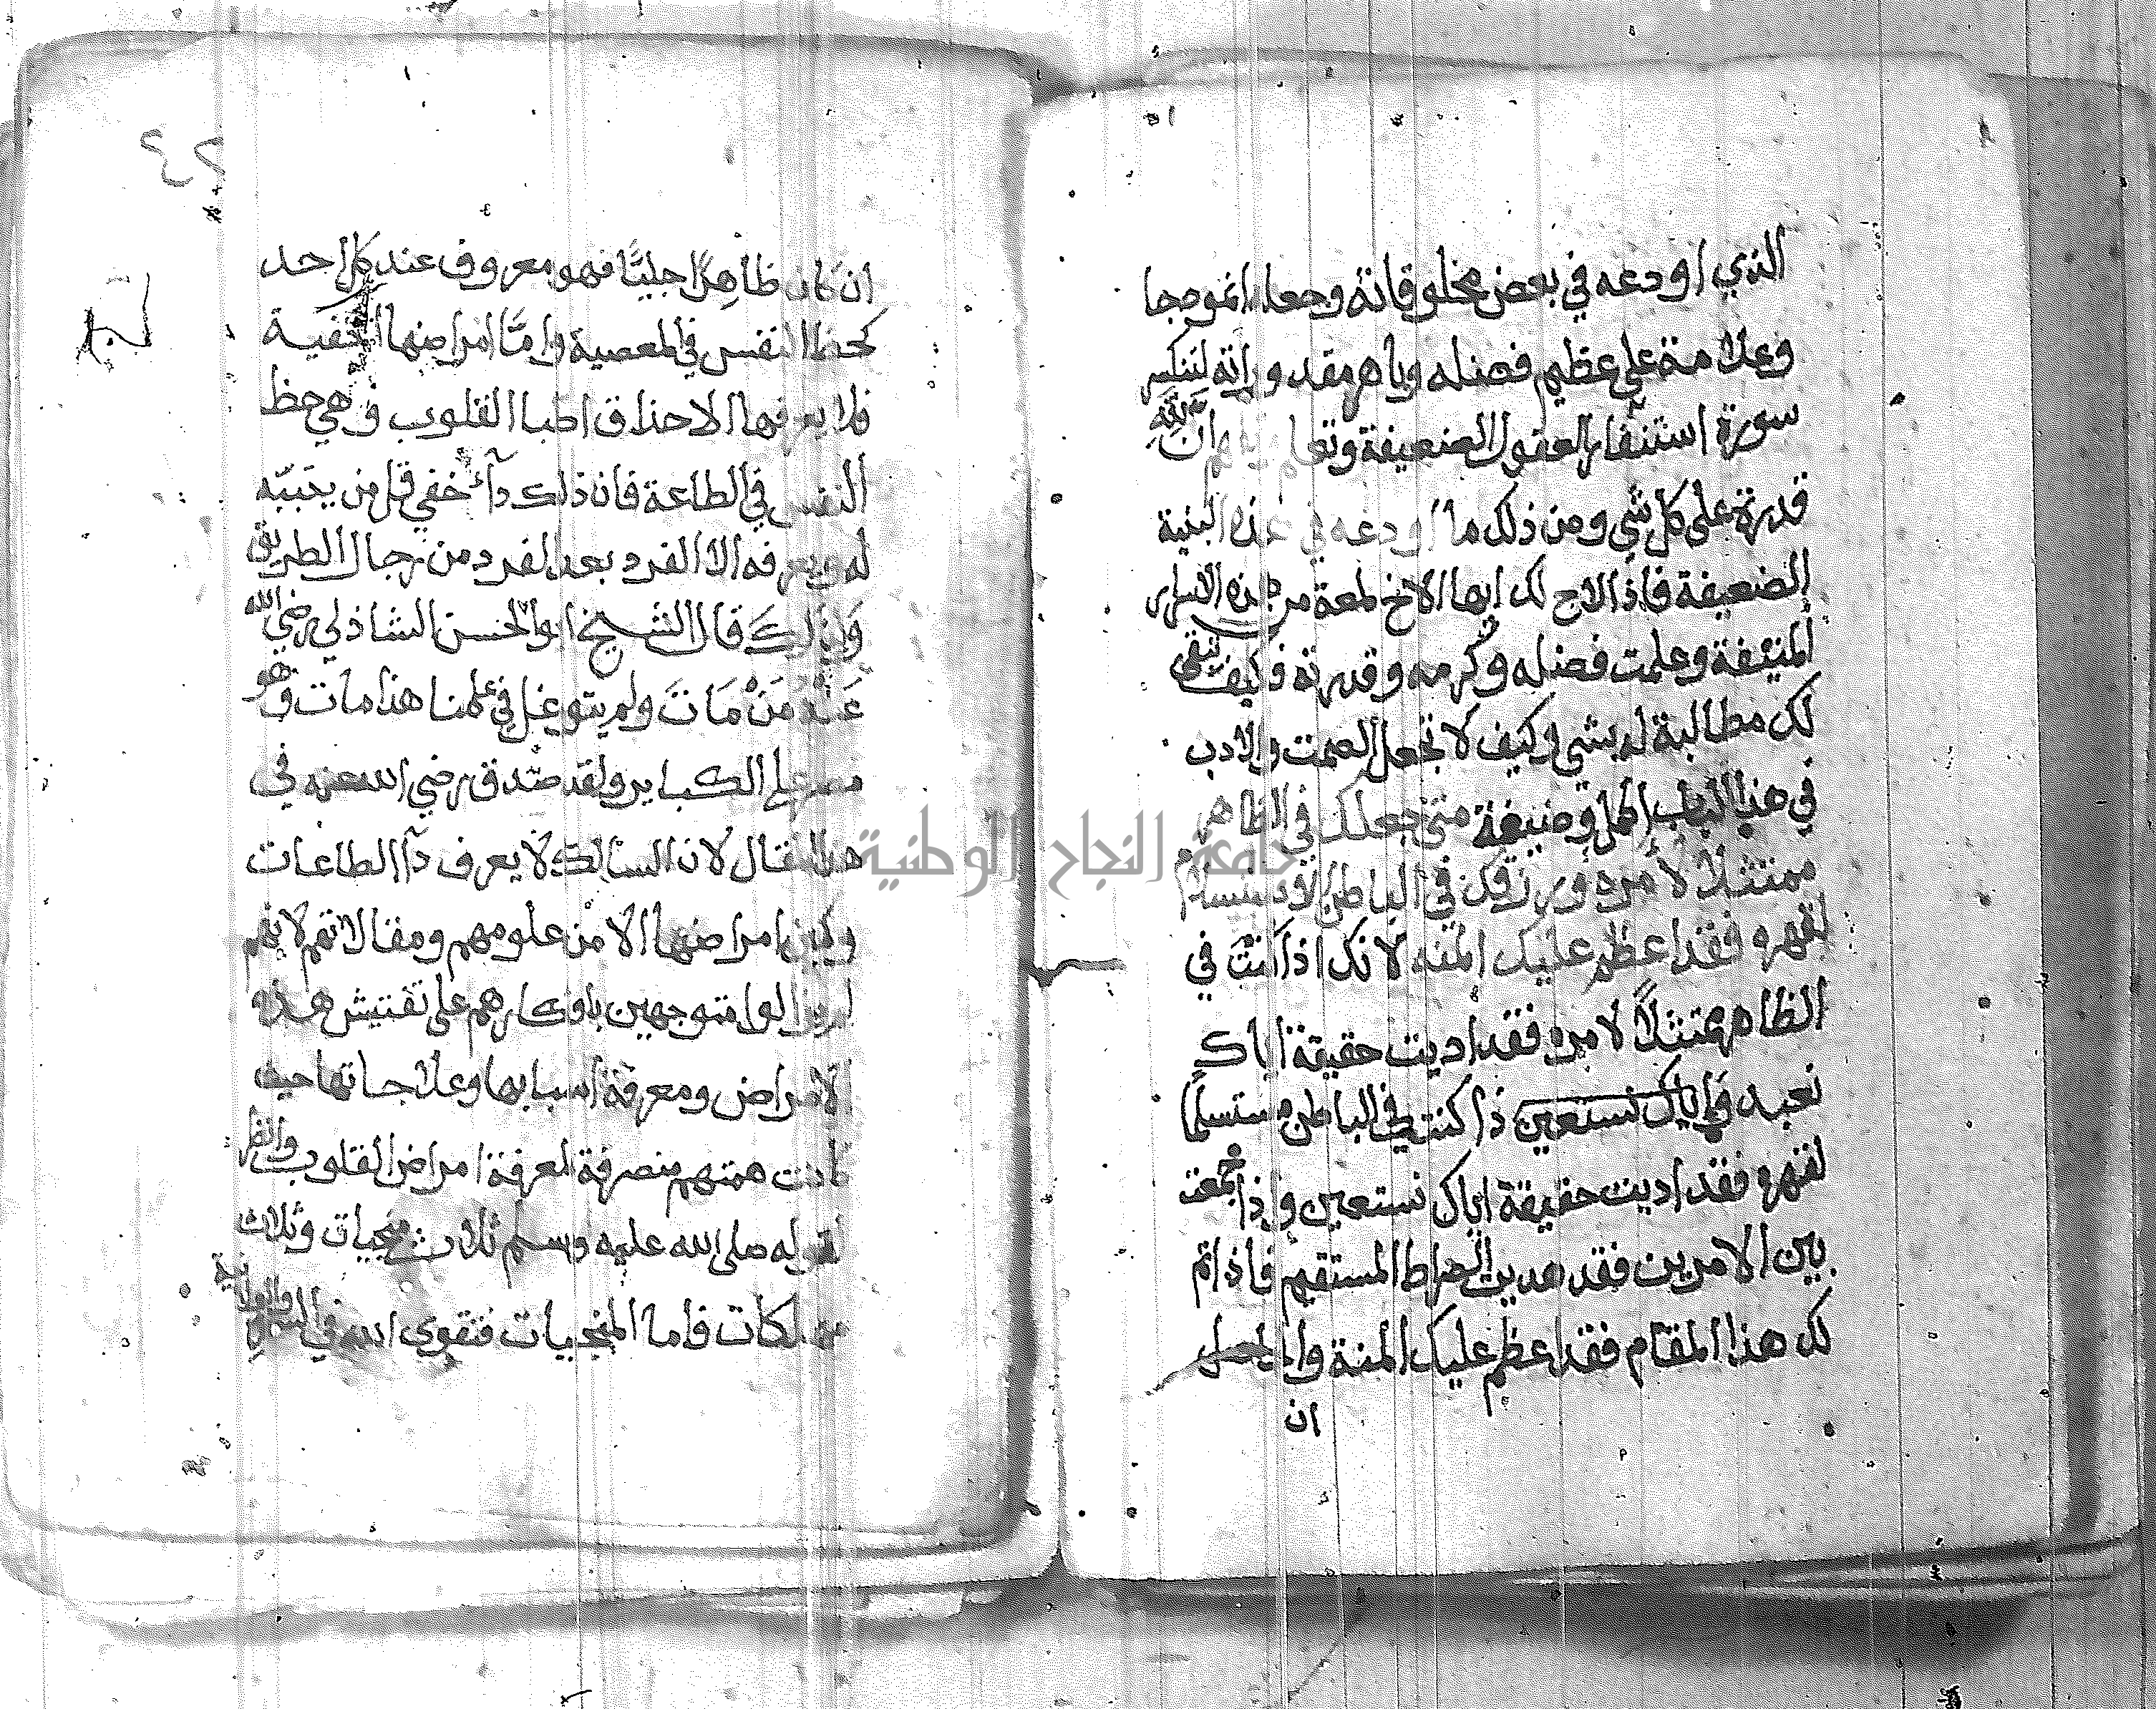 الذي اودعه في بعض مخلوقاته وجعله انموذجا
وعلامة على عظيم فضله وباهر مقدوراته لتنكسر
سورة استنقاء العقول الضعيفة وتعلم ان الله
قدرة على كل شي ومن ذلك ما اودعه في هذه البنية
الضعيفة فاذا لاح لك ايها الاخ لمعة من هذه الاسرار
المنيفة وعلمت فضله وكرمه وقدرته فكيف تبقى
لك مطالبة له بشي وكيف لا تجعل الصمت والادب
في هذا الباب متى جعلك في الظاهر
ممتثلا لامره ورزقك في الباطن الاستسلام
لقهره فقد اعظم عليك المنه لانك اذا كنت في
الظاهر ممتثلاً لامره فقد اديت حقيقة اياك
نعبد واياك نستعين ذا كنت في الباطن مستسلما
لقهره فقد اديت حقيقة اياك نستعين واذا جمعت
بين الامرين فقد هديت الصراط المستقيم فاذا تم
لك هذا المقام فقد اعظم عليك المنة والحاصل
ان
٤٢
ان كان ظاهرًا جليًّا فهو معروف عند كل احد
كحظ النفس في المعصية وامَّا امراضها الخفية
فلا يعرفها الا حذاق اطبا القلوب وهي حظ
النفس في الطاعة فان ذلك دآء خفي قل من يجببّه
له ويعرفه الا الفرد بعد الفرد من رجال الطريق
وَلذلك قال الشيخ ابو الحسن الشاذلي رضي الله
عَنْهُ مَنْ مَاتَ ولم يتوغل في علمنا هذا مات وهو
مصر على الكباير ولقد صَدق رضي الله عنه في
هذا المقال لان السالك لا يعرف دآ الطاعات
وكمين امراضها الا من علومهم ومقالاتهم لانهم
لم يزالوا متوجهين بافكارهم على تفتيش هذه
الامراض ومعرفة اسبابها وعلاجاتها حيث
كانت همتهم منصرفة لمعرفة امراض القلوب وانظر
لقوله صلى الله عليه وسلم ثلاث منجيات وثلاث
مهلكات فاما المنجيات فتقوى الله في السر والعلانية
جامعة النجاح الوطنية